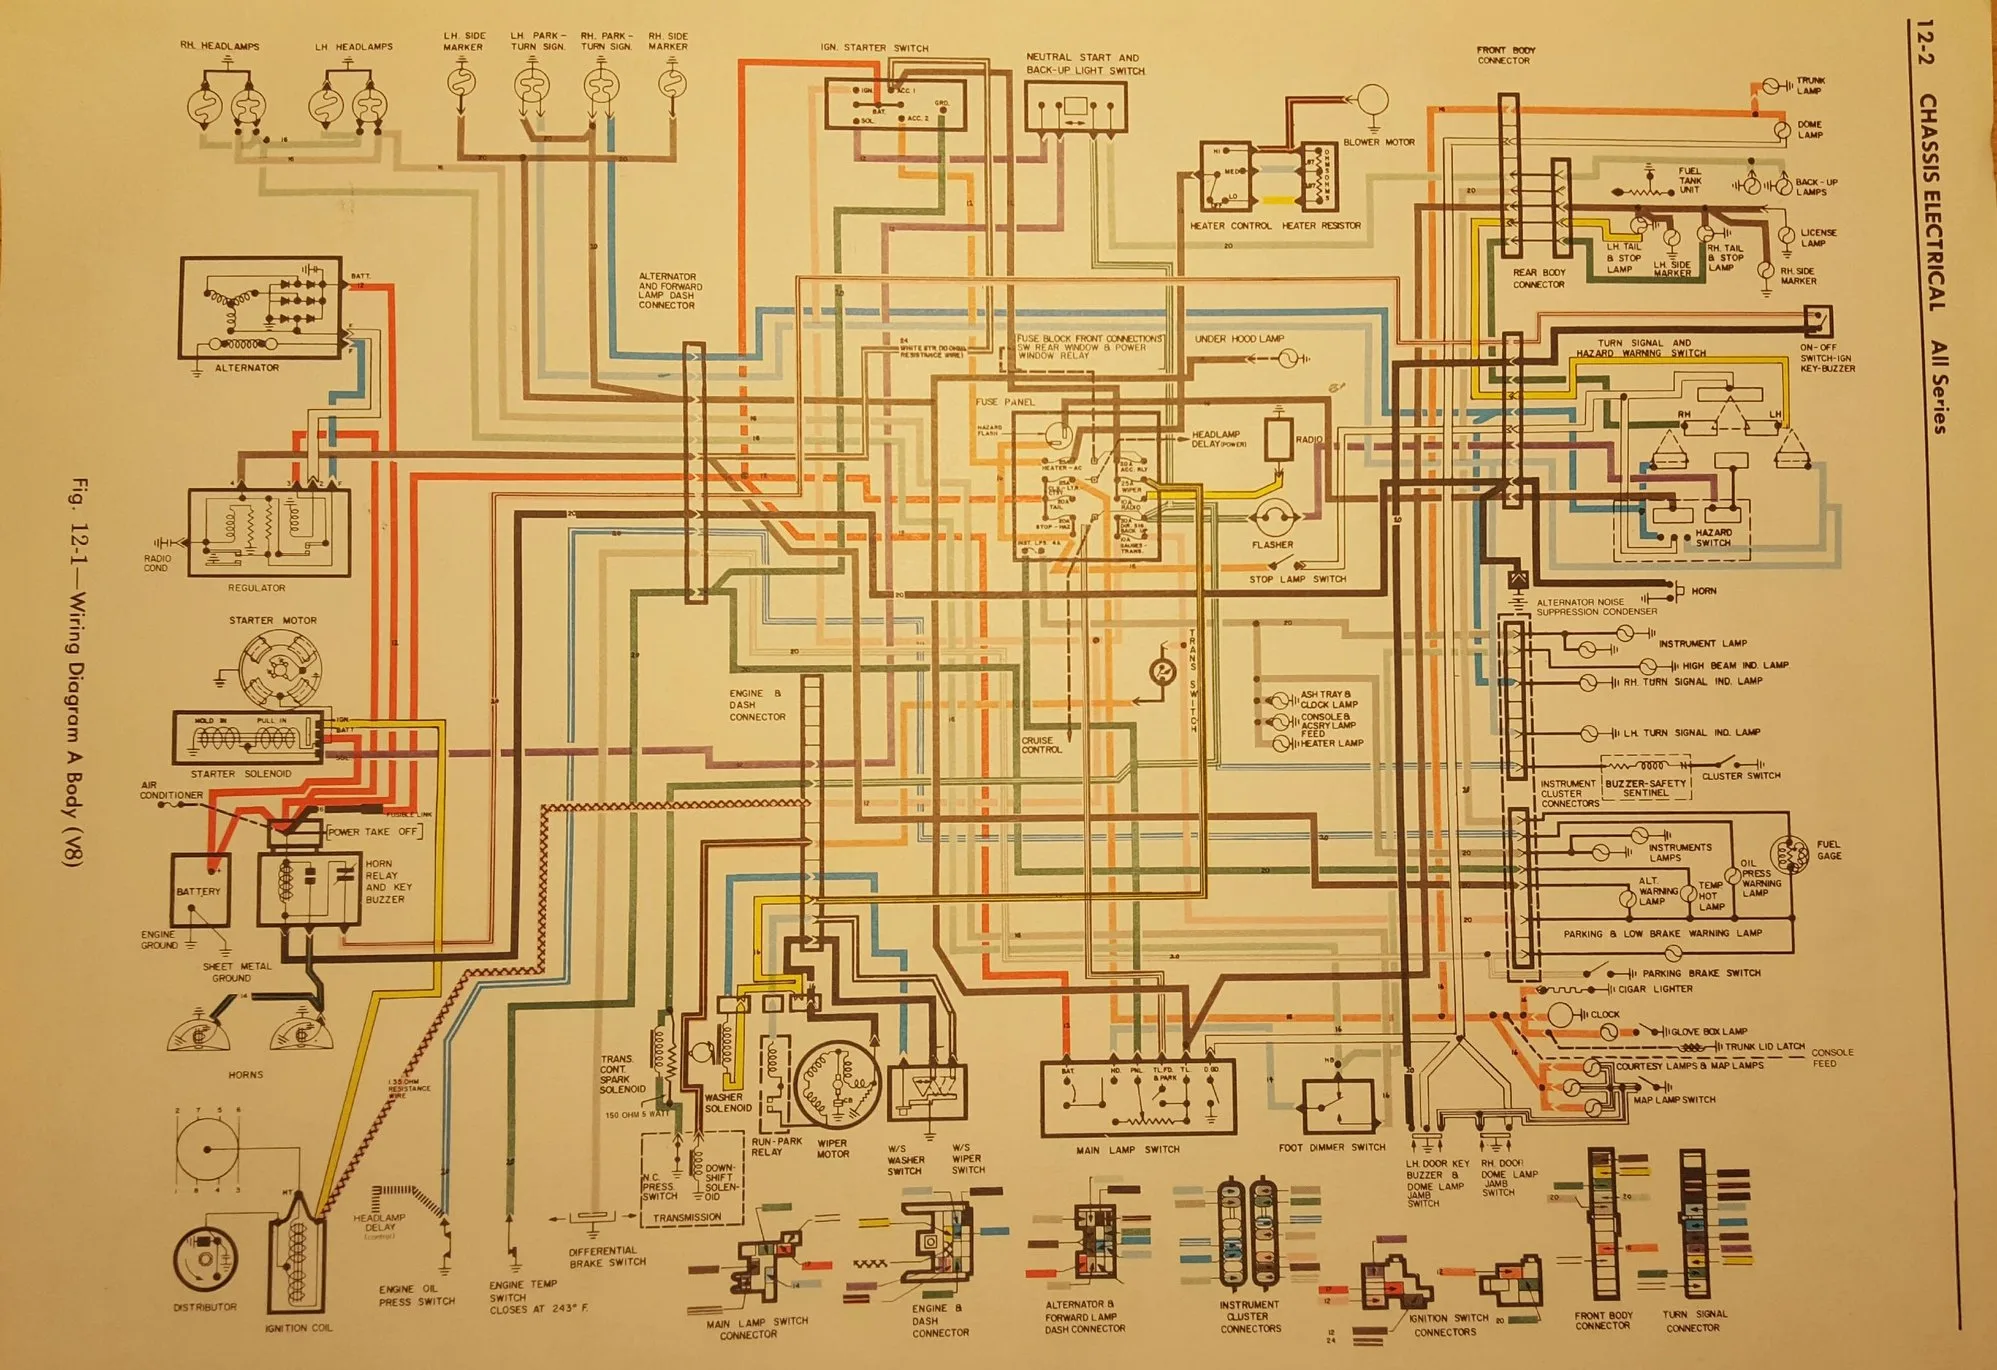 12-2 CHASSIS ELECTRICAL All Series
Fig. 12-1—Wiring Diagram A Body (V8)
RH. HEADLAMPS
LH HEADLAMPS
LH. SIDE
MARKER
LH. PARK-
TURN SIGN.
RH. PARK-
TURN SIGN.
RH. SIDE
MARKER
IGN. STARTER SWITCH
IGN.
ACC. 1
BAT.
GRD.
SOL.
ACC. 2
NEUTRAL START AND
BACK-UP LIGHT SWITCH
FRONT BODY
CONNECTOR
TRUNK
LAMP
DOME
LAMP
BLOWER MOTOR
HI
MED
LO
OFF
HEATER CONTROL
HEATER RESISTOR
FUEL
TANK
UNIT
BACK-UP
LAMPS
LICENSE
LAMP
LH. TAIL
& STOP
LAMP
LH. SIDE
MARKER
RH. TAIL
& STOP
LAMP
RH. SIDE
MARKER
REAR BODY
CONNECTOR
BATT.
ALTERNATOR
ALTERNATOR
AND FORWARD
LAMP DASH
CONNECTOR
24
WHITE STR. (10 OHM
RESISTANCE WIRE)
FUSE BLOCK FRONT CONNECTIONS
SW REAR WINDOW & POWER
WINDOW RELAY
UNDER HOOD LAMP
TURN SIGNAL AND
HAZARD WARNING SWITCH
ON-OFF
SWITCH-IGN
KEY-BUZZER
RH
LH
FUSE PANEL
HAZARD
FLASH
HEADLAMP
DELAY (POWER)
HEATER-AC
TAIL
STOP-HAZ
INST. LPS. 4A
WIPER
RADIO
GAUGES-
TRANS.
RADIO
FLASHER
STOP LAMP SWITCH
HAZARD
SWITCH
HORN
ALTERNATOR NOISE
SUPPRESSION CONDENSER
RADIO
COND
REGULATOR
STARTER MOTOR
HOLD IN
PULL IN
IGN
BATT
SOL
STARTER SOLENOID
AIR
CONDITIONER
FUSIBLE LINK
[POWER TAKE OFF]
BATTERY
HORN
RELAY
AND KEY
BUZZER
ENGINE
GROUND
SHEET METAL
GROUND
HORNS
ENGINE &
DASH
CONNECTOR
TRANS SWITCH
CRUISE
CONTROL
ASH TRAY &
CLOCK LAMP
CONSOLE &
ACSRY LAMP
FEED
HEATER LAMP
INSTRUMENT LAMP
HIGH BEAM IND. LAMP
RH. TURN SIGNAL IND. LAMP
LH. TURN SIGNAL IND. LAMP
INSTRUMENT
CLUSTER
CONNECTORS
BUZZER-SAFETY
SENTINEL
CLUSTER SWITCH
INSTRUMENTS
LAMPS
FUEL
GAGE
ALT.
WARNING
LAMP
TEMP
HOT
LAMP
OIL
PRESS
WARNING
LAMP
PARKING & LOW BRAKE WARNING LAMP
PARKING BRAKE SWITCH
CIGAR LIGHTER
CLOCK
GLOVE BOX LAMP
TRUNK LID LATCH
CONSOLE
FEED
COURTESY LAMPS & MAP LAMPS
MAP LAMP SWITCH
1.35 OHM
RESISTANCE
WIRE
2 7 5 6
1 8 4 3
HT
DISTRIBUTOR
IGNITION COIL
HEADLAMP
DELAY
(control)
ENGINE OIL
PRESS SWITCH
ENGINE TEMP
SWITCH
CLOSES AT 243° F.
DIFFERENTIAL
BRAKE SWITCH
TRANS.
CONT.
SPARK
SOLENOID
150 OHM 5 WATT
N.C.
PRESS.
SWITCH
DOWN-
SHIFT
SOLEN-
OID
TRANSMISSION
WASHER
SOLENOID
RUN-PARK
RELAY
CB
WIPER
MOTOR
W/S
WASHER
SWITCH
W/S
WIPER
SWITCH
BAT.
HD.
PNL
TL.FD.
& PARK
TL.
D.GD.
MAIN LAMP SWITCH
HB
FOOT DIMMER SWITCH
LH. DOOR KEY
BUZZER &
DOME LAMP
JAMB
SWITCH
RH. DOOR
DOME LAMP
JAMB
SWITCH
MAIN LAMP SWITCH
CONNECTOR
ENGINE &
DASH
CONNECTOR
ALTERNATOR &
FORWARD LAMP
DASH CONNECTOR
INSTRUMENT
CLUSTER
CONNECTORS
12
24
IGNITION SWITCH
CONNECTORS
FRONT BODY
CONNECTOR
TURN SIGNAL
CONNECTOR